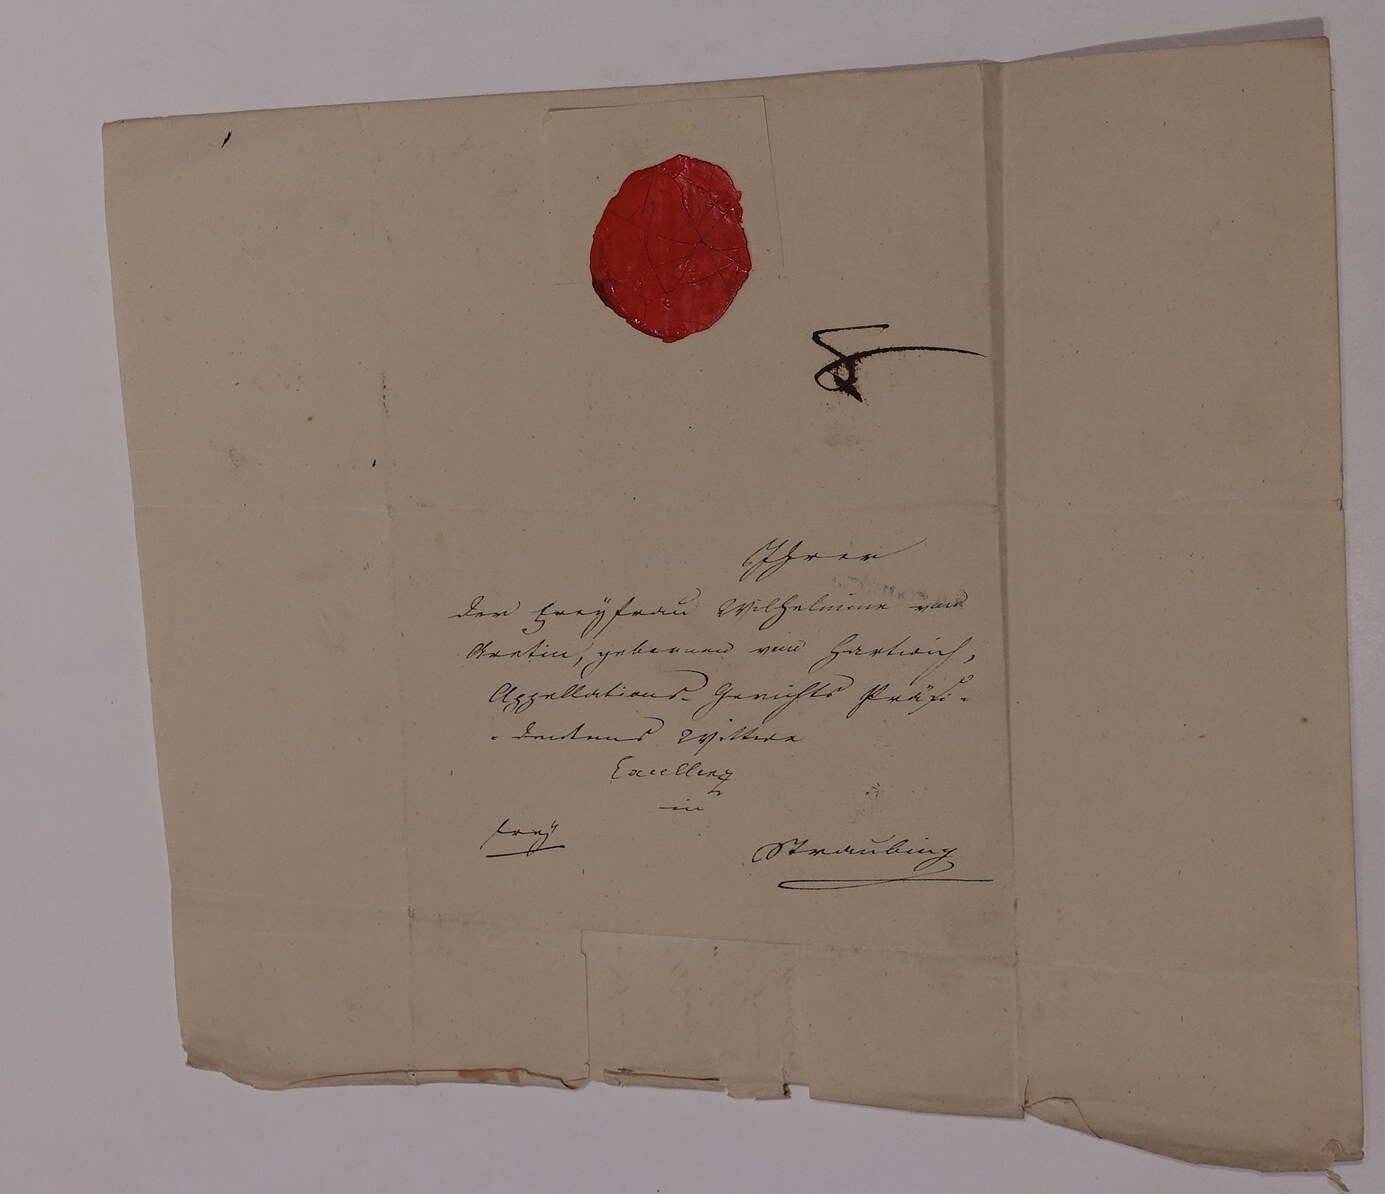 Ihrer
der Freyfrau Wilhelmine von
Aretin, gebornen von Hartwich,
Appellations-Gerichts Präsi-
-dentens Wittwe
Excellenz
in
frey
Straubing